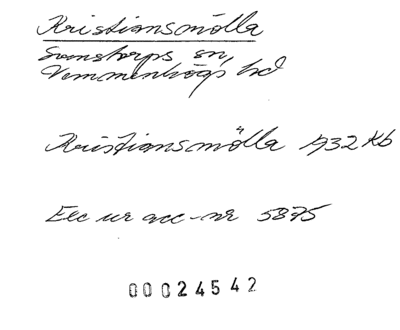 Kristiansmölla
Svenstorps sn,
Vemmenhögs hd
Kristiansmölla 1932 Kb
Exc ur acc-nr 5875
00024542